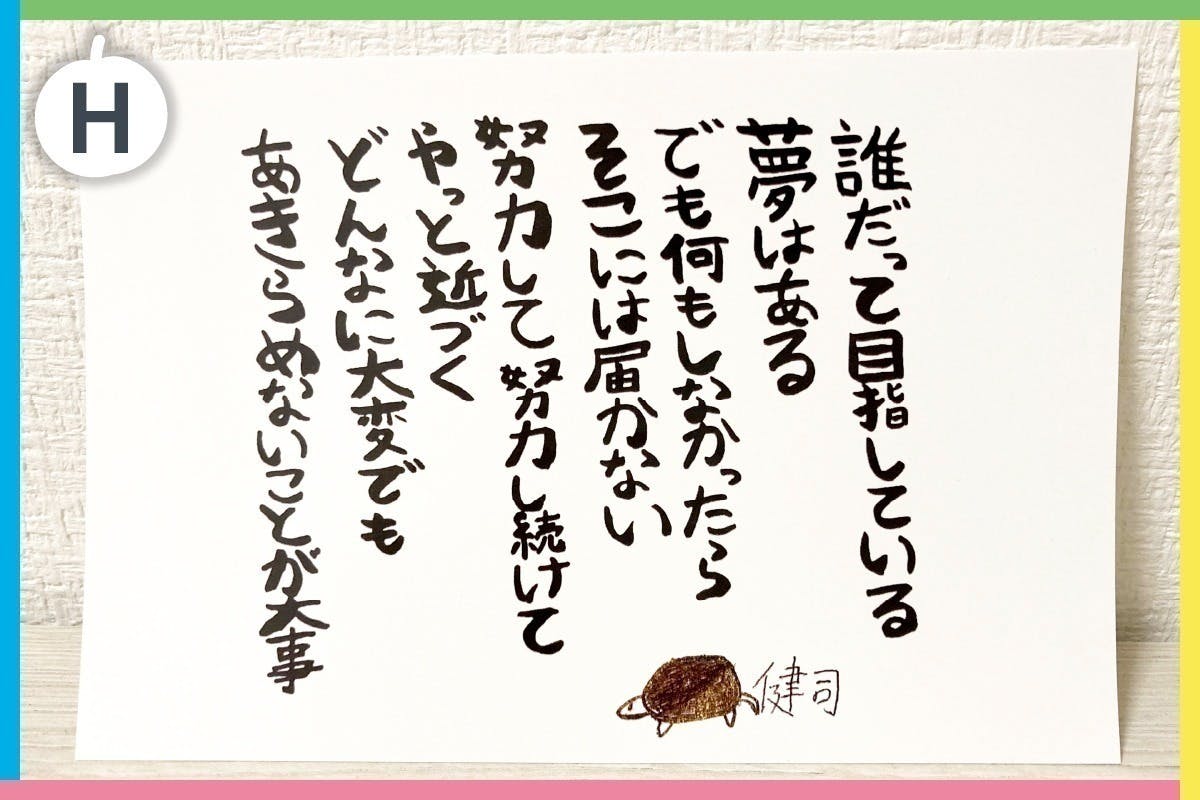 H
誰だって目指している
夢はある
でも何もしなかったら
そこには届かない
努力して努力し続けて
やっと近づく
どんなに大変でも
あきらめないことが大事
健司